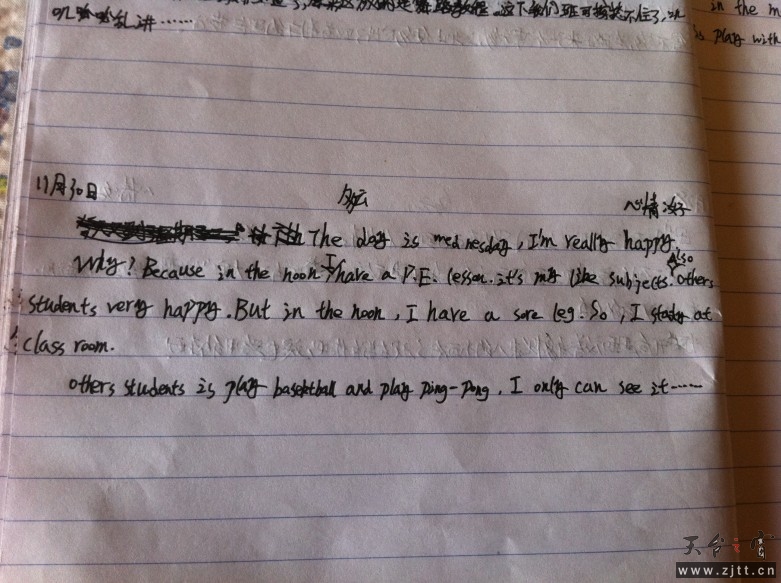 in the m
叽哈哈乱讲……
play with
11月30日 多云 心情:好
The day is wednesday, I'm really happy.
Why? Because in the noon I have a P.E. lesson. it's my like subjects. Also others
students very happy. But in the noon, I have a sore leg. So, I study at
class room.
others students is play basektball and play ping-pong, I only can see it……
天台之窗
www.zjtt.cn